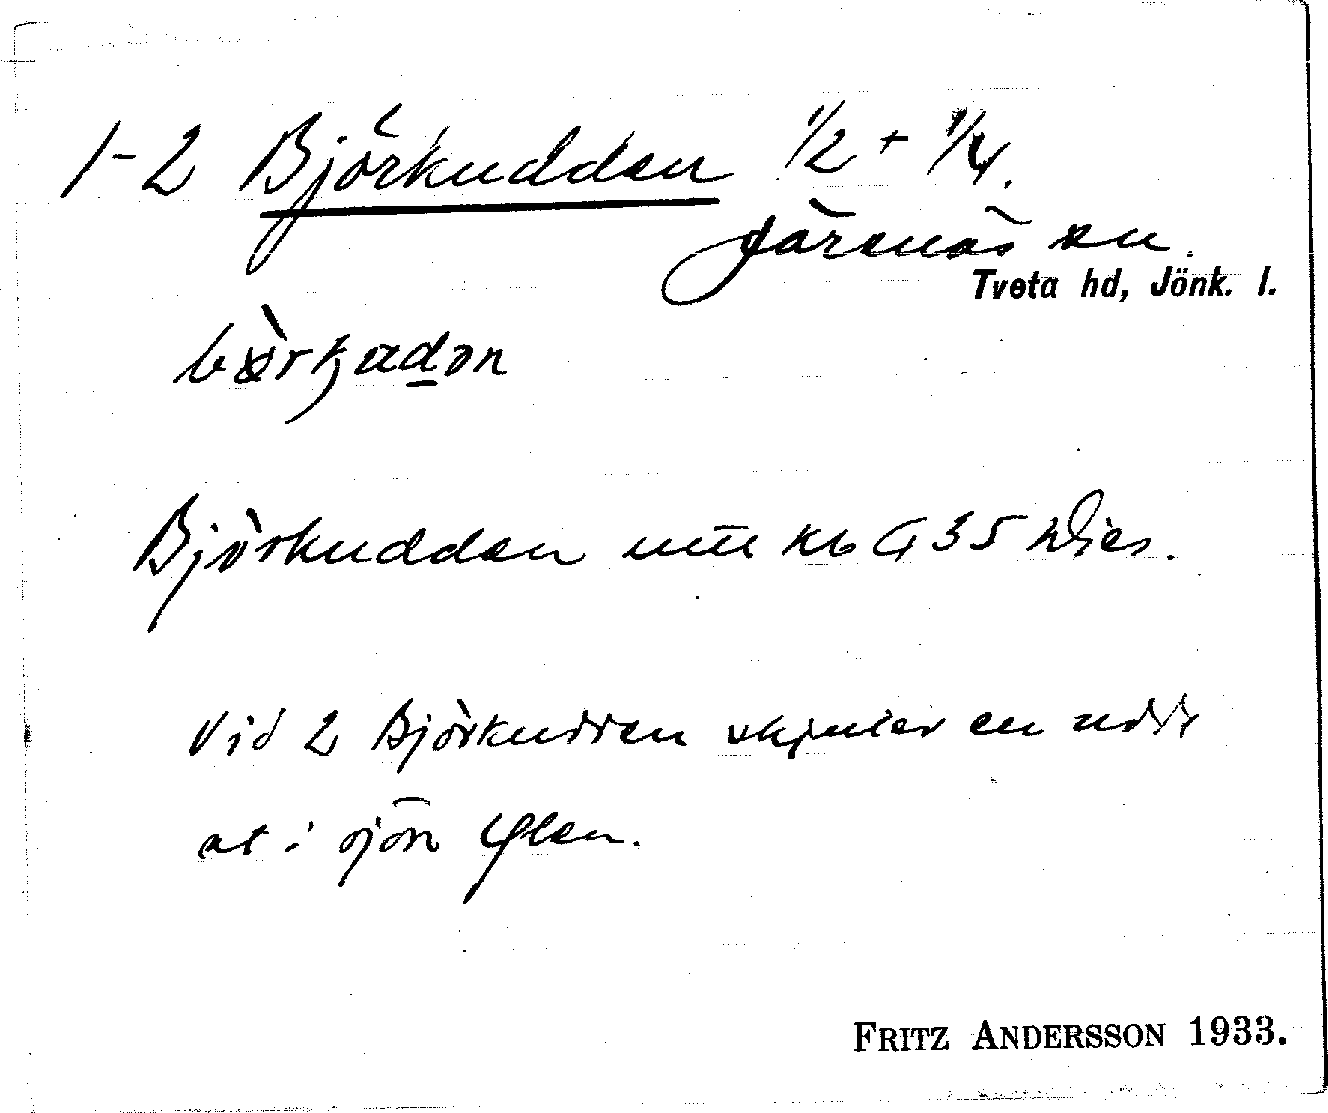 1-2 Björkudden 1/2 + 1/4.
Järsnäs sn.
Tveta hd, Jönk. l.
Björkudden
Vid 2 Björkudden skjuter en udde
ut i sjön Ylen.
FRITZ ANDERSSON 1933.